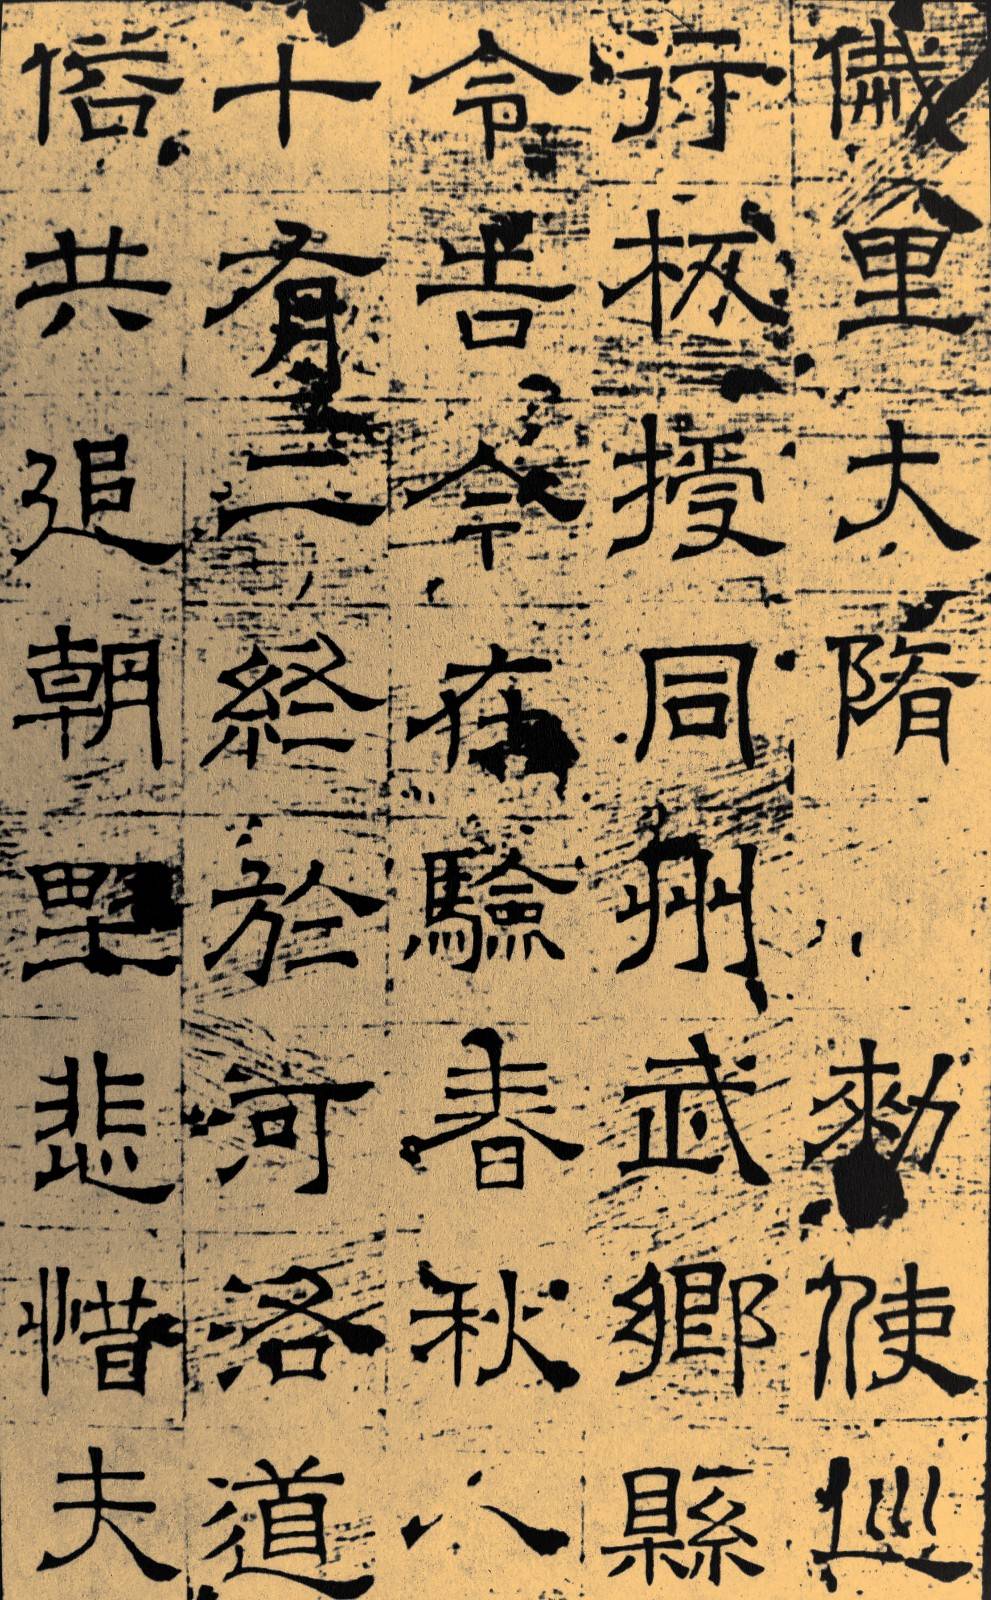 儀里大隋勑使巡
行板授同州武鄉縣
令吉今在驗春秋八
十有二終於河洛道
俗共追朝野悲惜夫